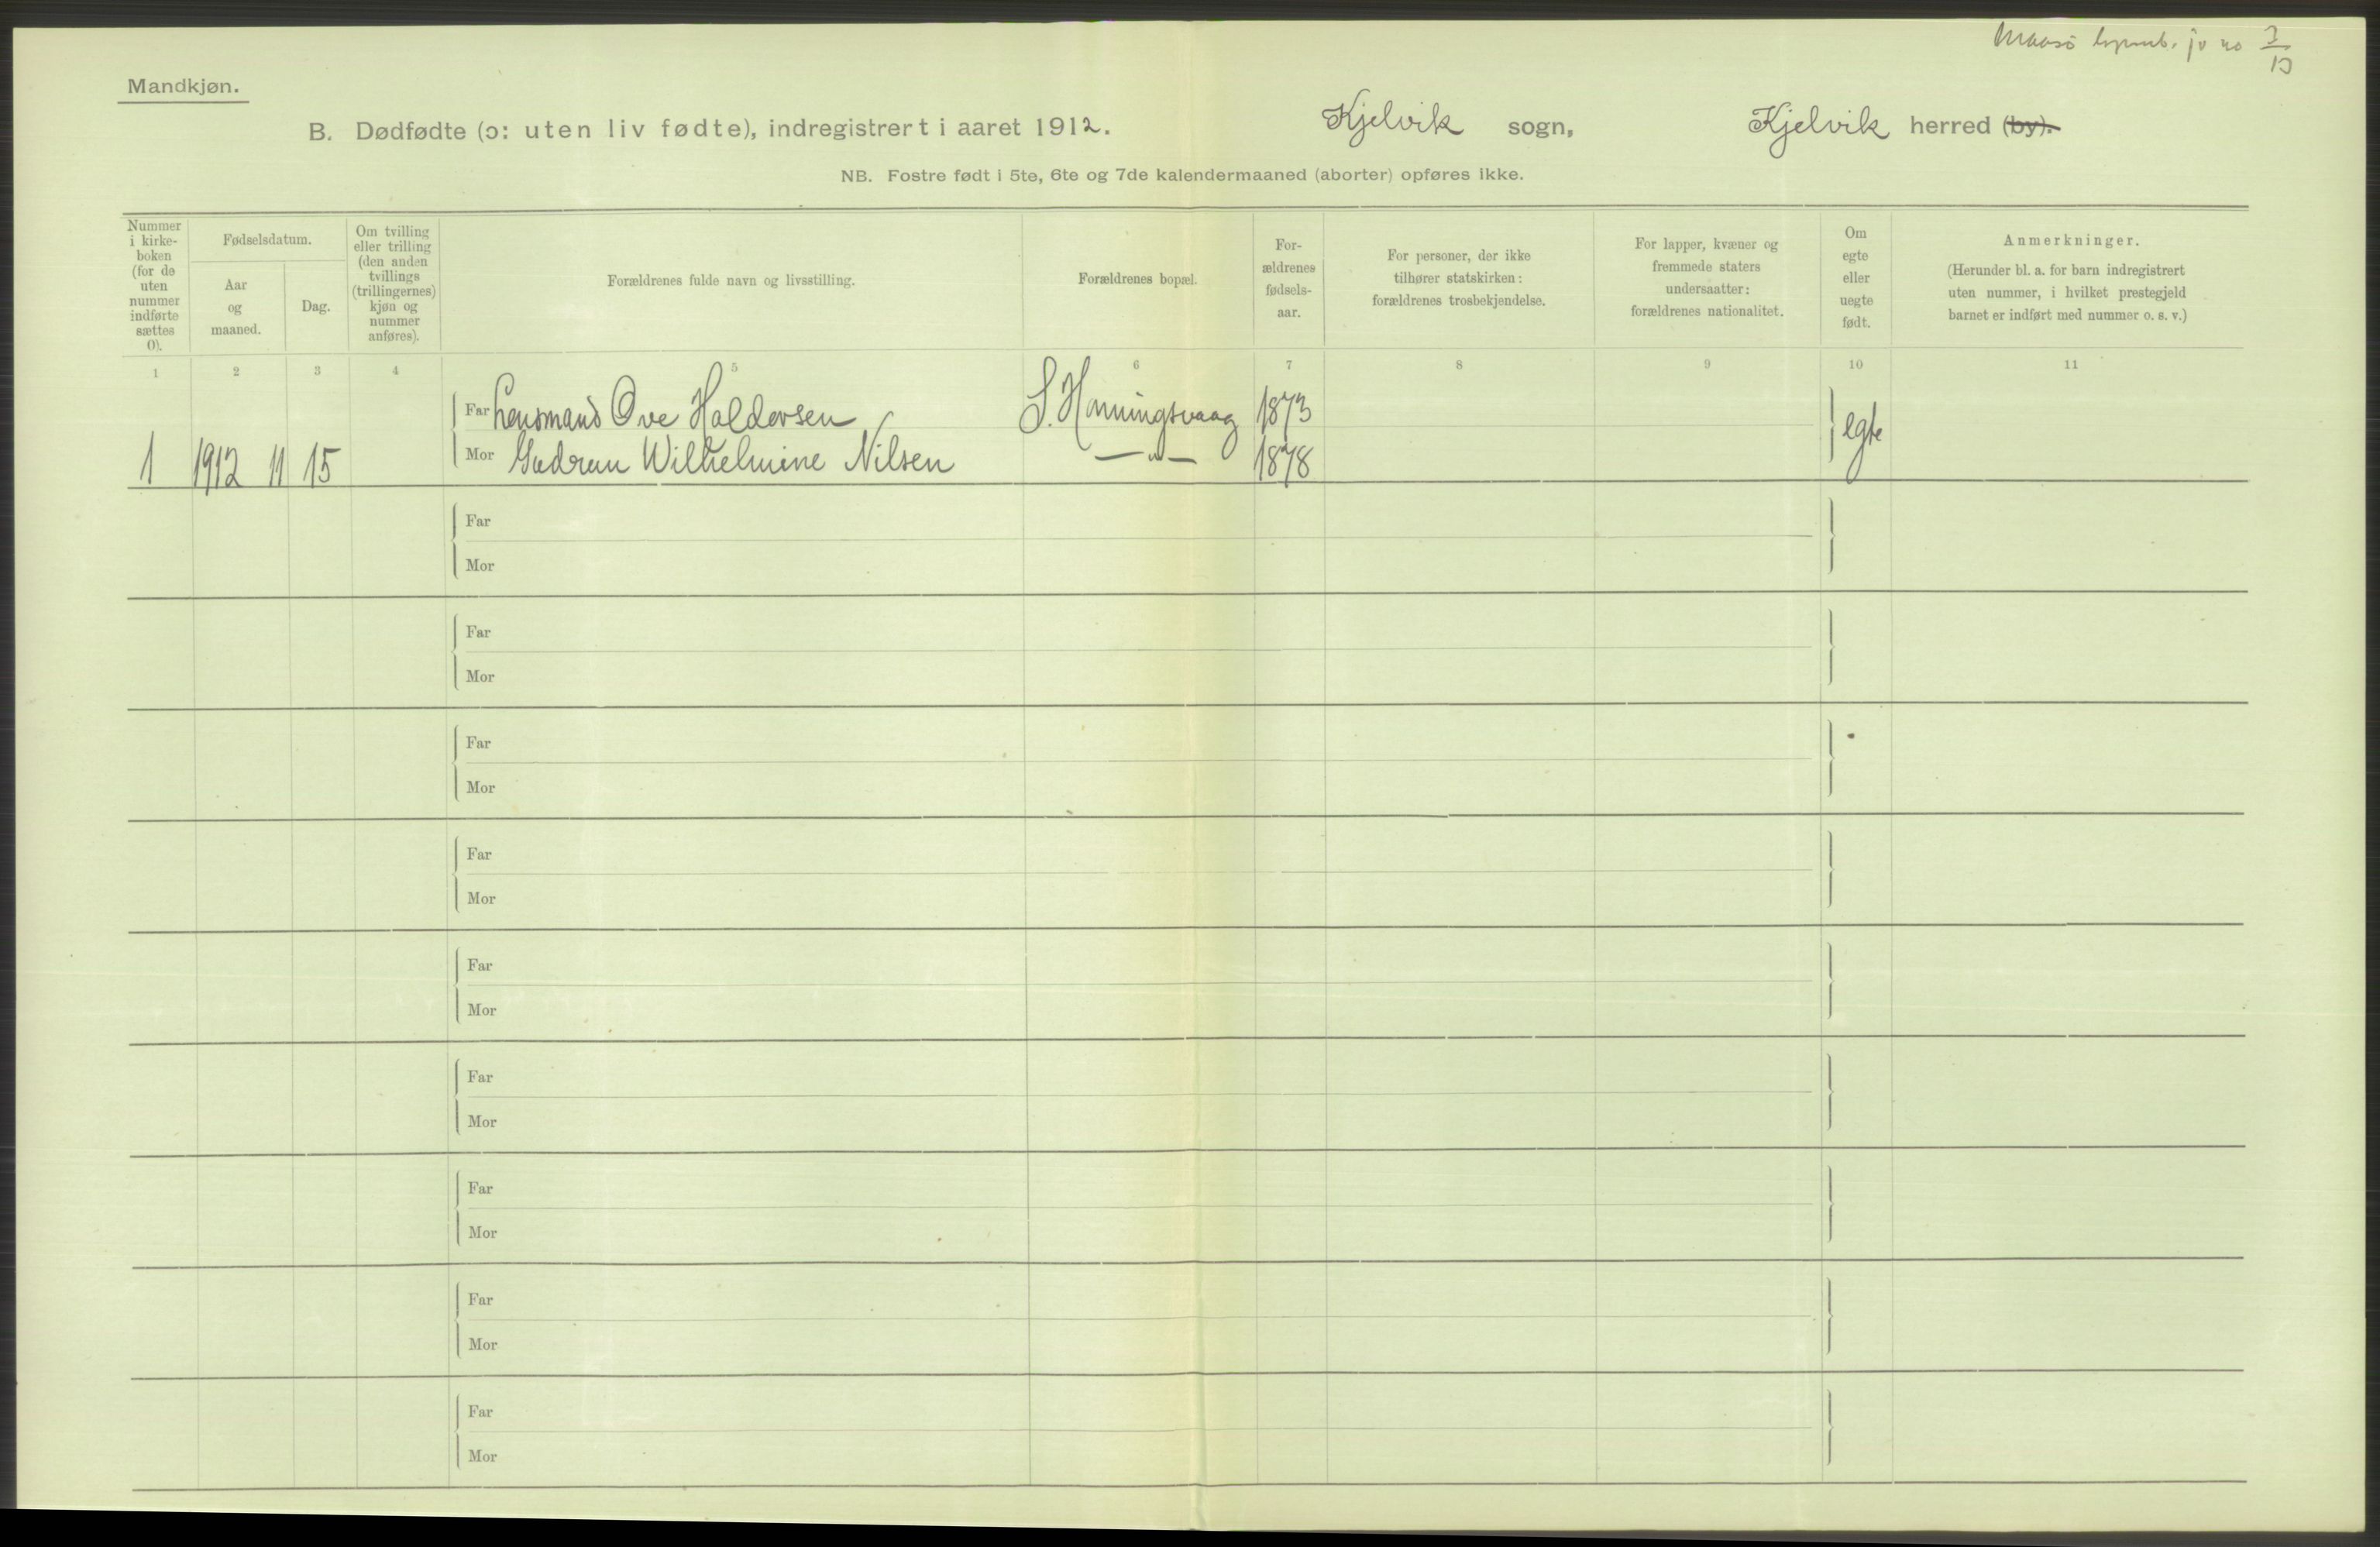 Maasø
Mandkjøn.
B. Dødfødte (ɔ: uten liv fødte), indregistrert i aaret 1912. Kjelvik sogn, Kjelvik herred (by).
NB. Fostre født i 5te, 6te og 7de kalendermaaned (aborter) opføres ikke.
Nummer
i kirke-
boken
(for de
uten
nummer
indførte
sættes
0).
Fødselsdatum.
Aar
og
maaned.
Dag.
Om tvilling
eller trilling
(den anden
tvillings
(trillingernes)
kjøn og
nummer
anføres).
Forældrenes fulde navn og livsstilling.
Forældrenes bopæl.
For-
ældrenes
fødsels-
aar.
For personer, der ikke
tilhører statskirken:
forældrenes trosbekjendelse.
For lapper, kvæner og
fremmede staters
undersaatter:
forældrenes nationalitet.
Om
egte
eller
uegte
født.
Anmerkninger.
(Herunder bl. a. for barn indregistrert
uten nummer, i hvilket prestegjeld
barnet er indført med nummer o. s. v.)
1 2 3 4 5 6 7 8 9 10 11
Far Lensmand Ove Haldorsen S. Honningsvaag 1873
1 1912 11 15 Mor Gudrun Wilhelmine Nilsen —„— 1878 egte
Far
Mor
Far
Mor
Far
Mor
Far
Mor
Far
Mor
Far
Mor
Far
Mor
Far
Mor
Far
Mor